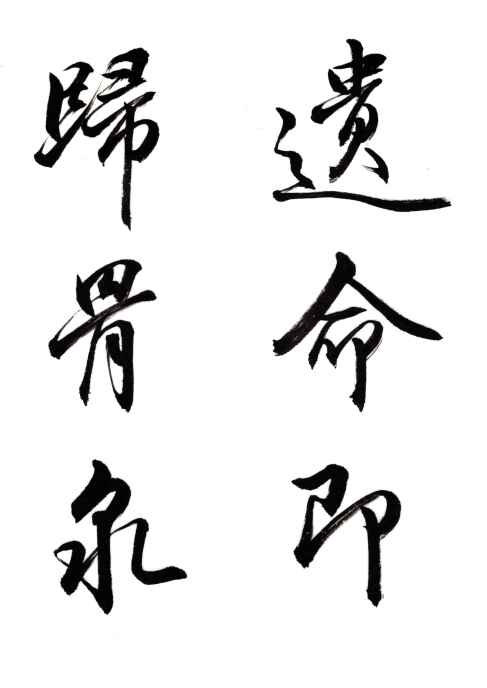 遺命即
歸骨泉